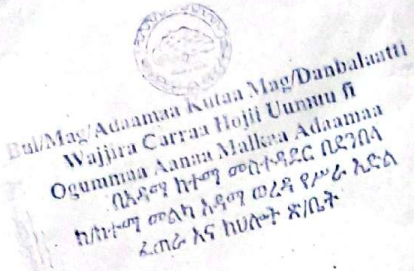 Bul/Mag/Adaamaa Kutaa Mag/Danbalaatti
Wajjira Carraa Hojii Uumuu fi
Ogummaa Aanaa Malkaa Adaamaa
በአዳማ ከተማ መስተዳደር በደንበላ
ክ/ከተማ መልካ አዳማ ወረዳ የሥራ እድል
ፈጠራ እና ክህሎት ጽ/ቤት